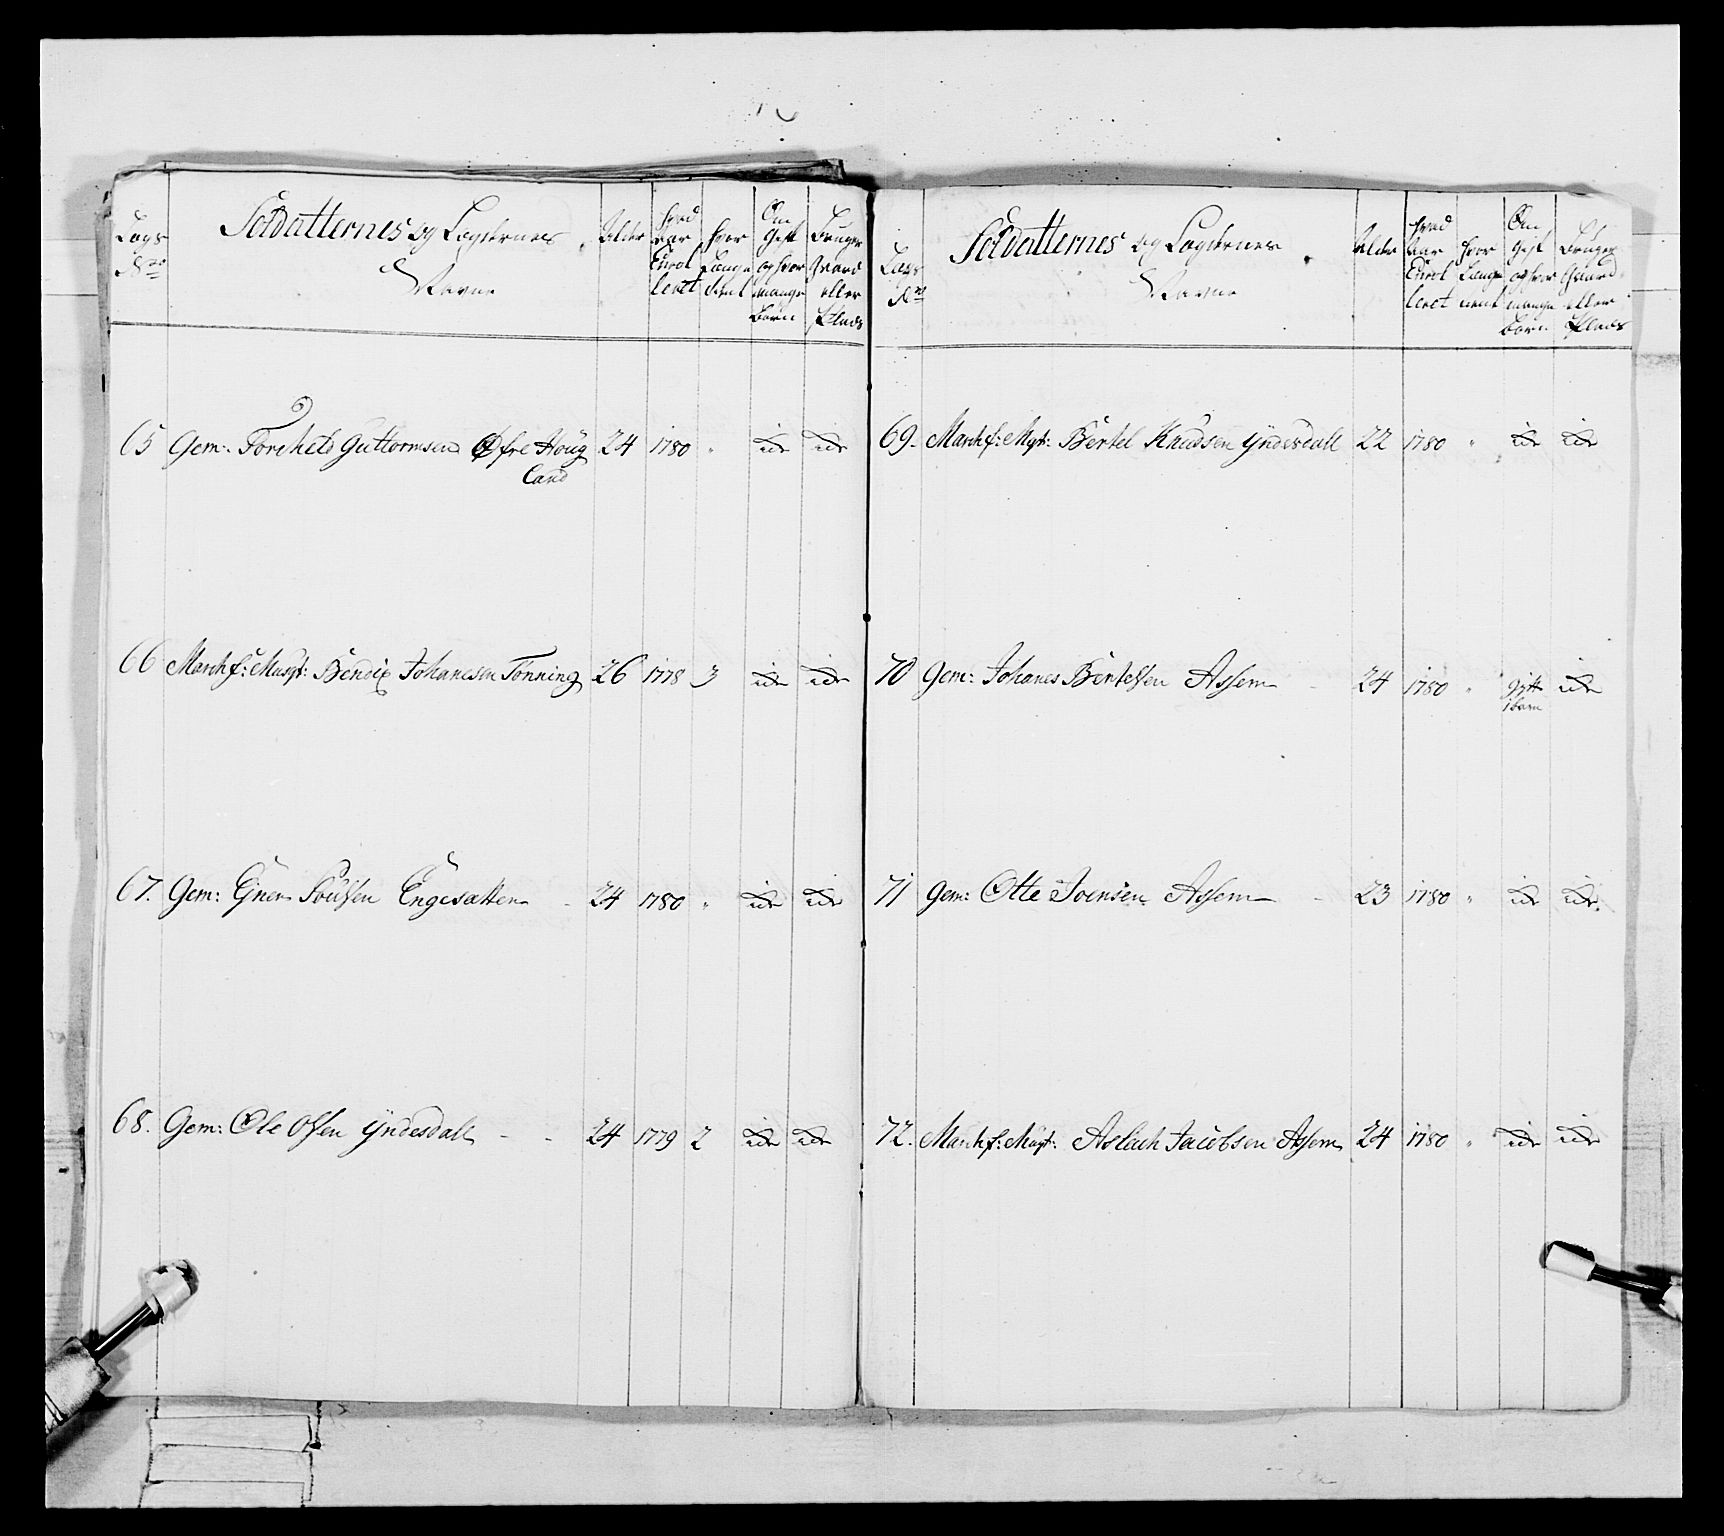 Lægs No
Soldatternes og Lægdernes Navne
Alder
hvad Aar Enrolleret
hvor Længe tient
Om Gift og hvor mange Børn
Bruger Gaard eller Plads
65 Gem: Torchels Guttormsen Øfre Höug 24 1780 " idr idr
land
66 Marchf: Musqt: Bendix Johanesen Tonning 26 1778 3 idr idr
67. Gem: Ejner Poulsen Engesætter 24 1780 " idr idr
68. Gem: Ole Olsen Ÿndesdall - - 24 1779 2 idr idr
Lægs No
Soldatternes og Lægdernes Navne
Alder
hvad Aar Enrolleret
hvor Længe tient
Om Gift og hvor mange børn
Bruger Gaard eller Plads
69. Marchf: Mqt: Bertel Knudsen Ÿndesdall 22 1780 " idr idr
70 Gem: Johanes Bertelsen Assem 24 1780 " gift idr
1 barn
71 Gem: Otte Joensen Assem - 23 1780 " idr idr
72. Marchf: Musqt: Aslach Jacobsen Assem 24 1780 " idr idr